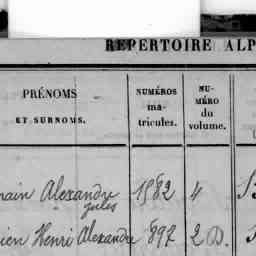 RÉPERTOIRE ALP
PRÉNOMS
ET SURNOMS.
NUMÉROS
ma-
tricules.
NU-
MÉRO
du
volume.
Alexandre 1582 4
Jules
Henri Alexandre 897 2 D.